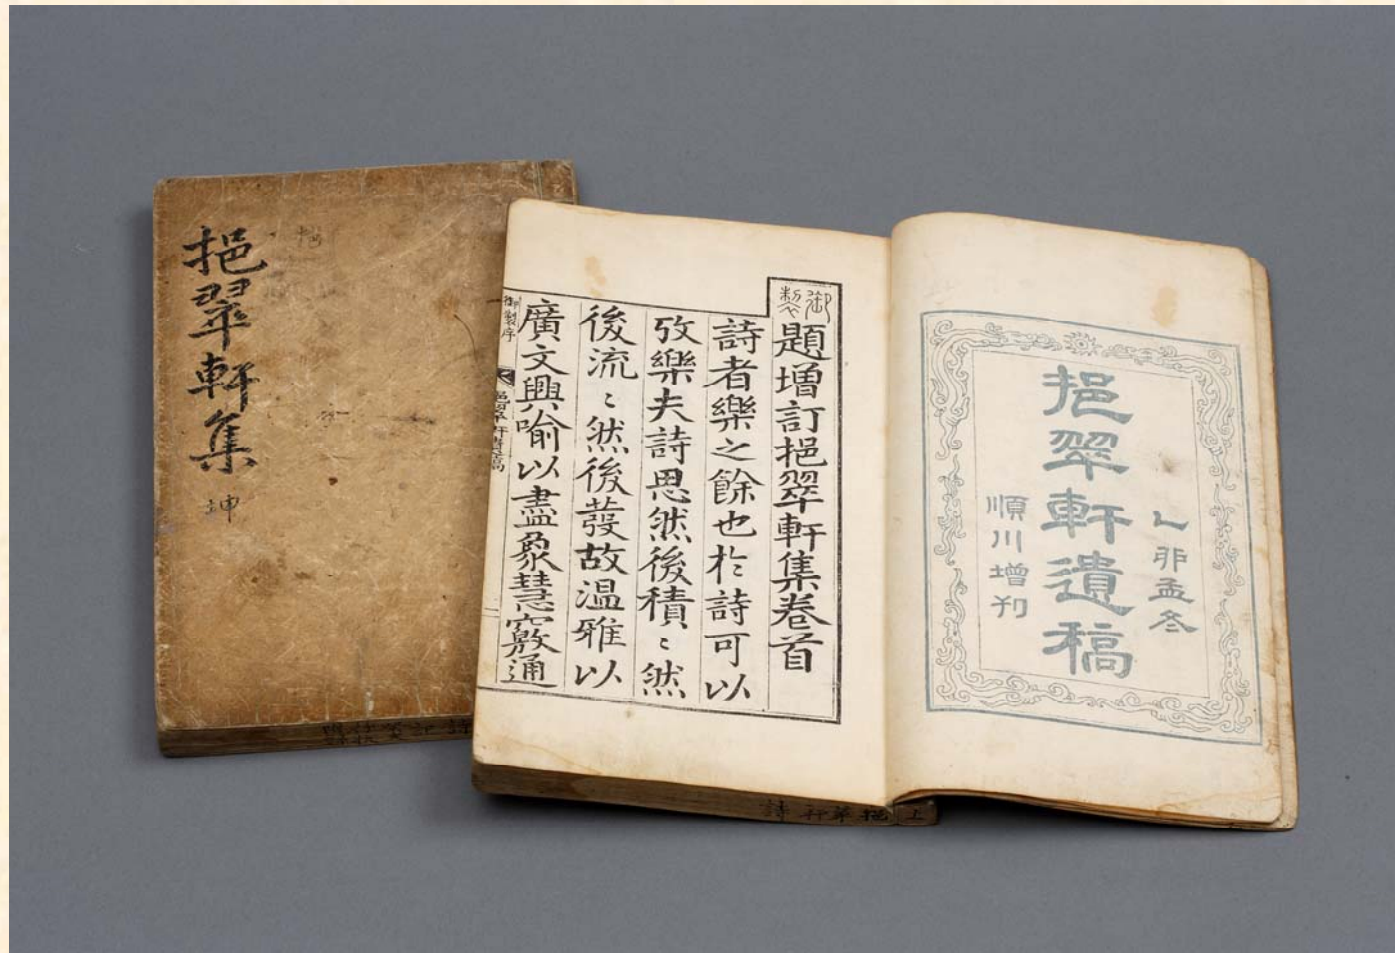 挹翠軒集
坤
乙卯孟冬
挹翠軒遺稿
順川增刋
御製
題增訂挹翠軒集卷首
詩者樂之餘也於詩可以
攷樂夫詩思然後積〻然
後流〻然後發故温雅以
廣文興喻以盡象慧竅通
御製序
挹翠軒遺稿
上
挹翠軒 詩